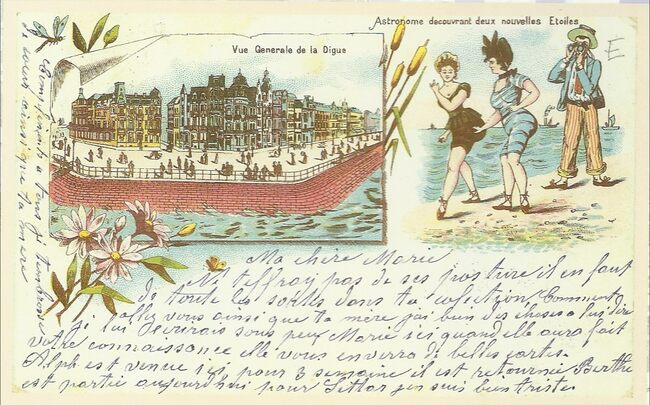 Astronome decouvrant deux nouvelles Etoiles
Vue Generale de la Digue
E
Ma chère Marie
N't effray pas de ses posture il en faut
de toute les sortes dans ta colection Comment
allez vous ainsi que ta mère j'ai bien des choses a lui dire
je lui Decrirais sous peu Marie ici quand elle aura fait
votre connaissance elle vous enverra de belles cartes
Alph est venue ici pour 3 semaine il est retournée Berthe
est partie aujourd'hui pour j'en suis bien triste
a tous je t'embrasse
de coeur ainsi que ta mère